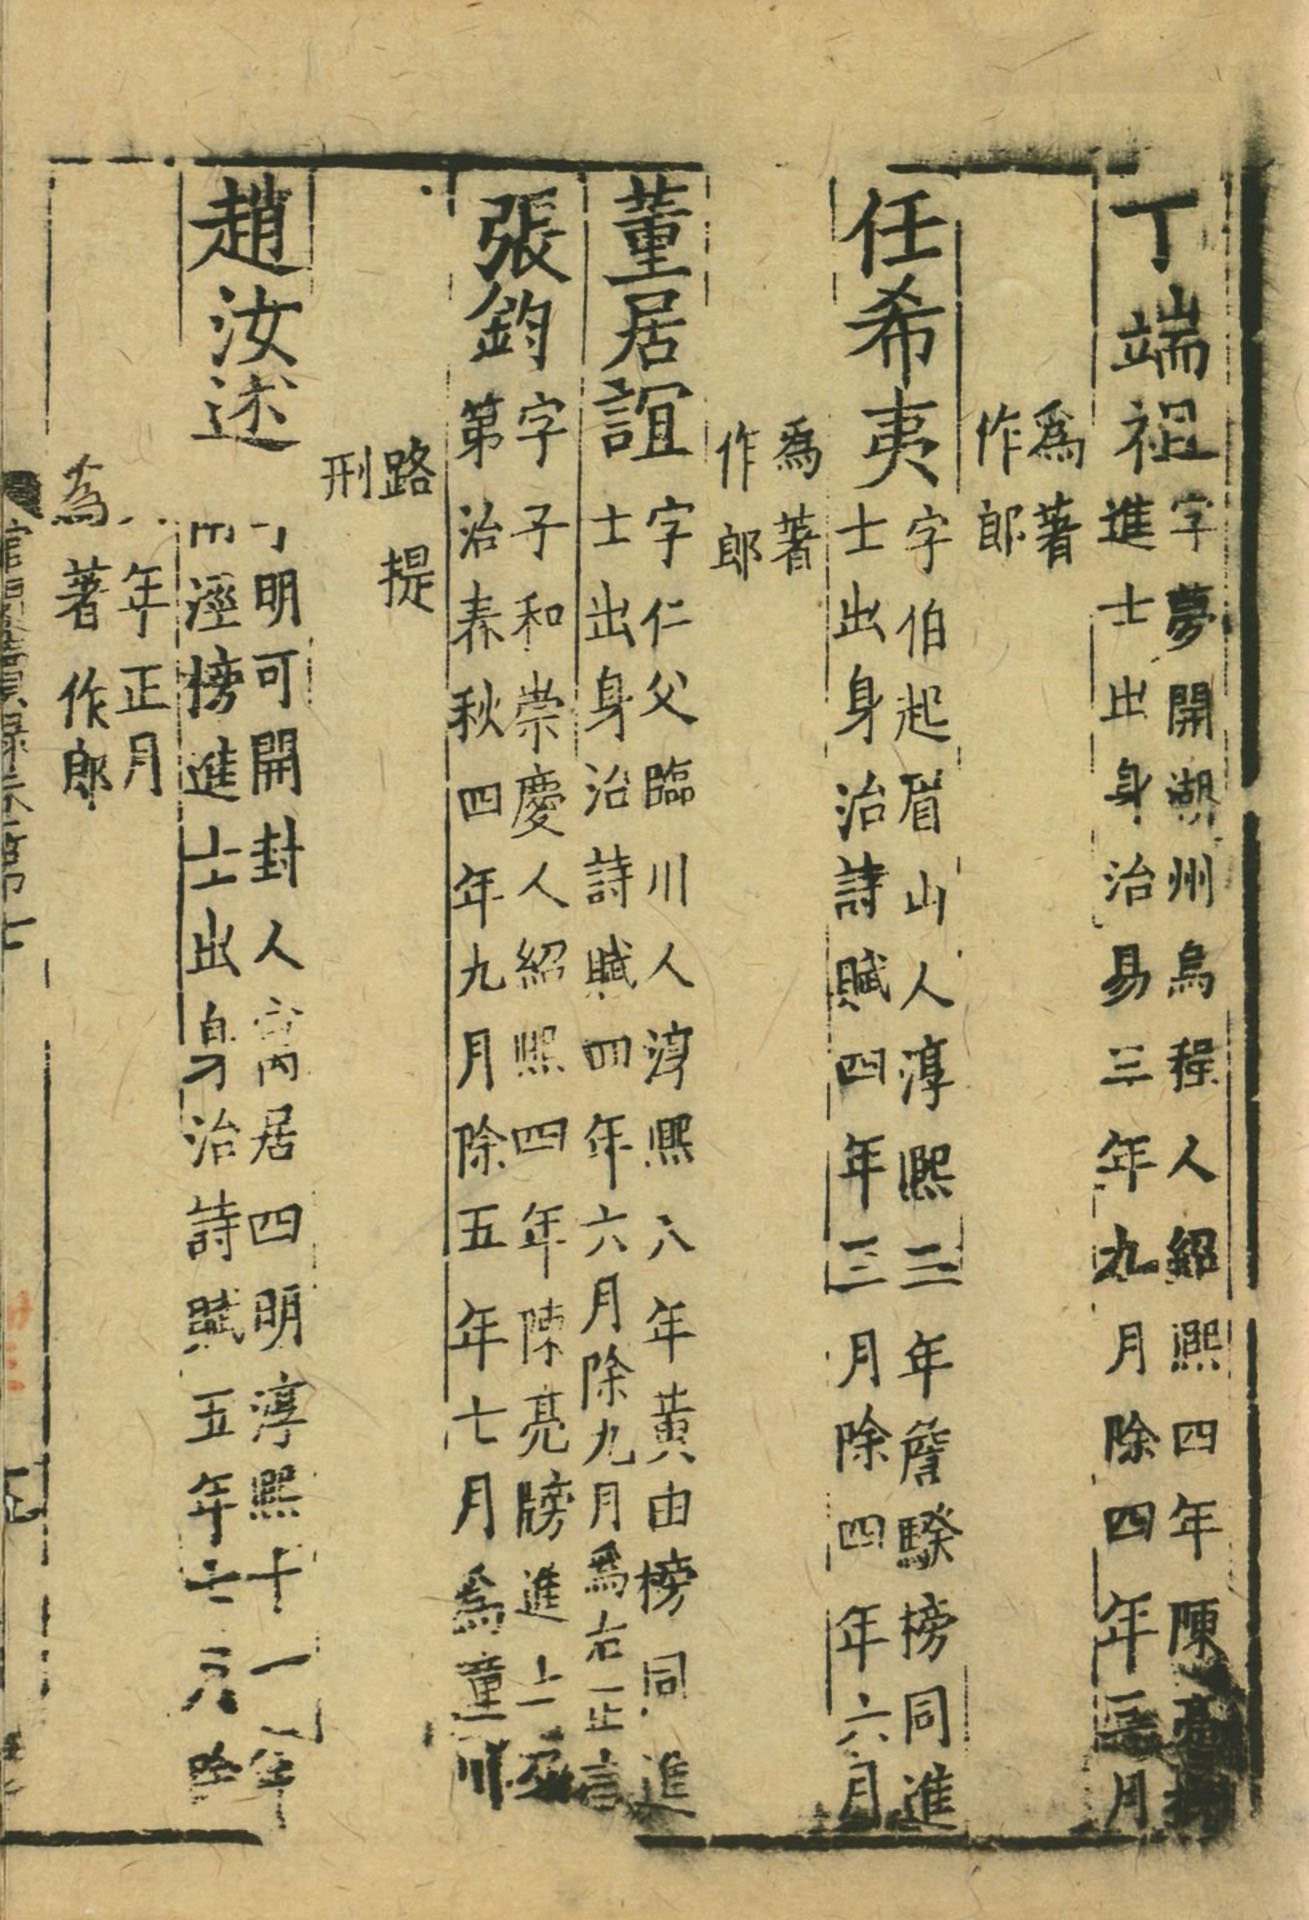 丁端祖字夢開湖州烏程人紹熙四年陳亮榜
進士出身治易三年九月除四年三月
爲著
作郎
任希夷字伯起眉山人淳熙三年詹騤榜同進
士出身治詩賦四年三月除四年六月
爲著
作郎
董居誼字仁父臨川人淳熙八年黃由榜同進
士出身治詩賦四年六月除九月爲右正言
張鈞字子和崇慶人紹熙四年陳亮牓進士及
第治春秋四年九月除五年七月爲童川
路提
刑
趙汝述字明可開封人寓居四明淳熙十一年
涇榜進士出身治詩賦五年七月除
年正月
為著作郎